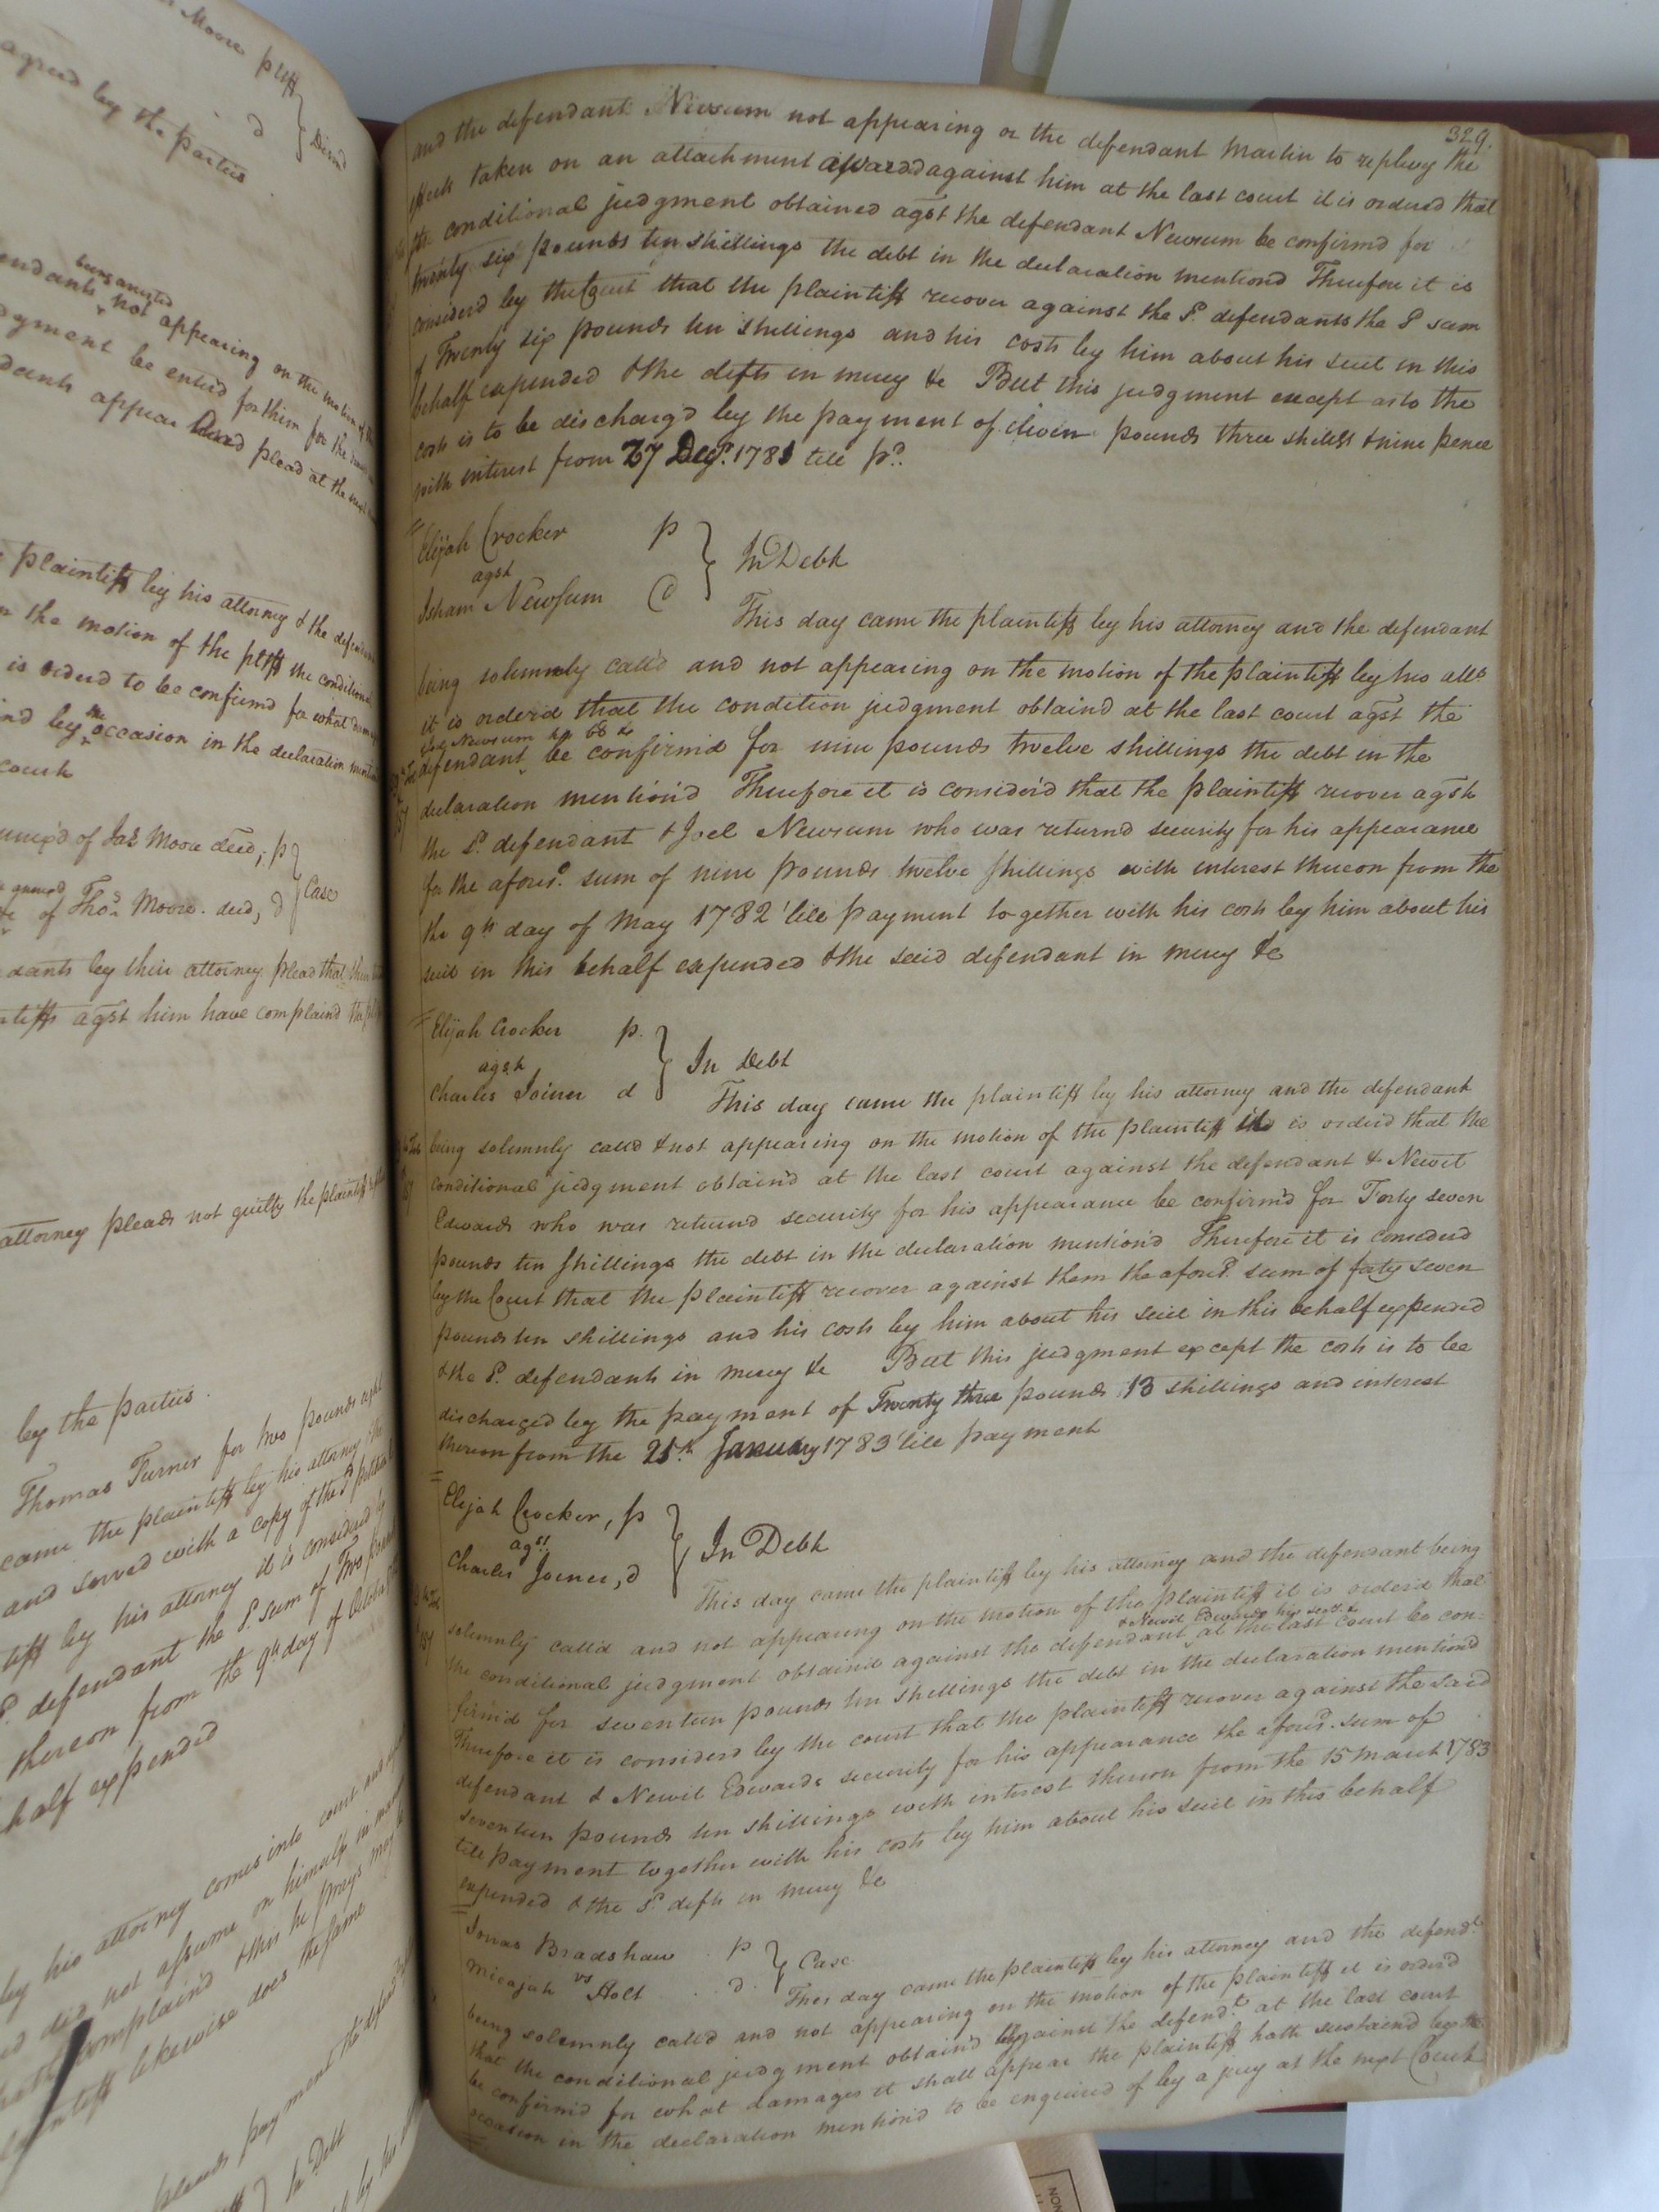 Moore pltff
d } Dismd
agreed by the parties
being arrested
not appearing on the motion of
judgment be entred for him for the
appear and plead at the next
plaintiff by his attorney & the defendant
on the motion of the pltff the conditional
is orderd to be confirmd for what
by the occasion in the declaration
court
of Jas Moore decd, p
} Case
of Thos Moore decd, d
dants by their attorney plead that
agst him have complaind
attorney pleads not guilty the plaintiff
by the parties
Thomas Turner for two pounds eight
came the plaintiff by his attorney
and served with a copy of the
tiff by his attorney it is considerd by
defendant the sd sum of Two
thereon from the 9th day of October
half expended
by his attorney comes into court and
did not assume on himself in
complaind & this he prays may
likewise does the same
pleads payment
In Debt
329.
and the defendant Newsum not appearing or the defendant Martin to replevy the
effects taken on an attachment awarded against him at the last court it is ordered that
conditional judgment obtained agst the defendant Newsum be confirmd for
twenty six pounds ten shillings the debt in the declaration mentiond Therefore it is
considerd by the Court that the plaintiff recover against the sd. defendants the sd sum
of Twenty six pounds ten shillings and his costs by him about his suit in this
behalf expended & the defts in mercy &c But this judgment except as to the
costs is to be dischargd by the payment of eleven pounds three shills & nine pence
with interest from 27 Decr. 1781 till pd.
Elijah Crocker p
agst } In Debt
Isham Newsum d
This day came the plaintiff by his attorney and the defendant
being solemnly calld and not appearing on the motion of the plaintiff by his atto
it is orderd that the condition judgment obtaind at the last court agst the
Joel Newsum
defendant be confirmd for nine pounds twelve shillings the debt in the
declaration mentiond Therefore it is considerd that the plaintiff recover agst
the sd. defendant & Joel Newsum who was returnd security for his appearance
for the aforesd. sum of nine pounds twelve shillings with interest thereon from the
the 9th day of May 1782 till payment together with his costs by him about his
suit in this behalf expended & the said defendant in mercy &c
Elijah Crocker p.
agst } In Debt
Charles Joiner d
This day came the plaintiff by his attorney and the defendant
being solemnly calld & not appearing on the motion of the plaintiff it is orderd that the
conditional judgment obtaind at the last court against the defendant & Newit
Edwards who was returnd security for his appearance be confirmd for Forty seven
pounds ten shillings the debt in the declaration mentiond Therefore it is considerd
by the Court that the plaintiff recover against them the aforesd. sum of forty seven
pounds ten shillings and his costs by him about his suit in this behalf expended
& the sd. defendants in mercy &c But this judgment except the costs is to be
discharged by the payment of Twenty three pounds 13 shillings and interest
thereon from the 25th January 1783 till payment
Elijah Crocker, p
agst } In Debt
Charles Joiner, d
This day came the plaintiff by his attorney and the defendant being
solemnly calld and not appearing on the motion of the plaintiff it is orderd that
& Newit Edwards his secy.
the conditional judgment obtaind against the defendant at the last court be con-
firmd for seventeen pounds ten shillings the debt in the declaration mentiond
Therefore it is considerd by the court that the plaintiff recover against the said
defendant & Newit Edwards security for his appearance the aforesd. sum of
seventeen pounds ten shillings with interest thereon from the 15 March 1783
till payment together with his costs by him about his suit in this behalf
expended & the sd defts in mercy &c
Jonas Bradshaw p
vs } Case
Micajah Holt d.
This day came the plaintiff by his attorney and the defendt.
being solemnly calld and not appearing on the motion of the plaintiff it is orderd
that the conditional judgment obtaind against the defendt at the last court
be confirmd for what damages it shall appear the plaintiff hath sustaind by the
occasion in the declaration mentiond to be enquired of by a jury at the next Court